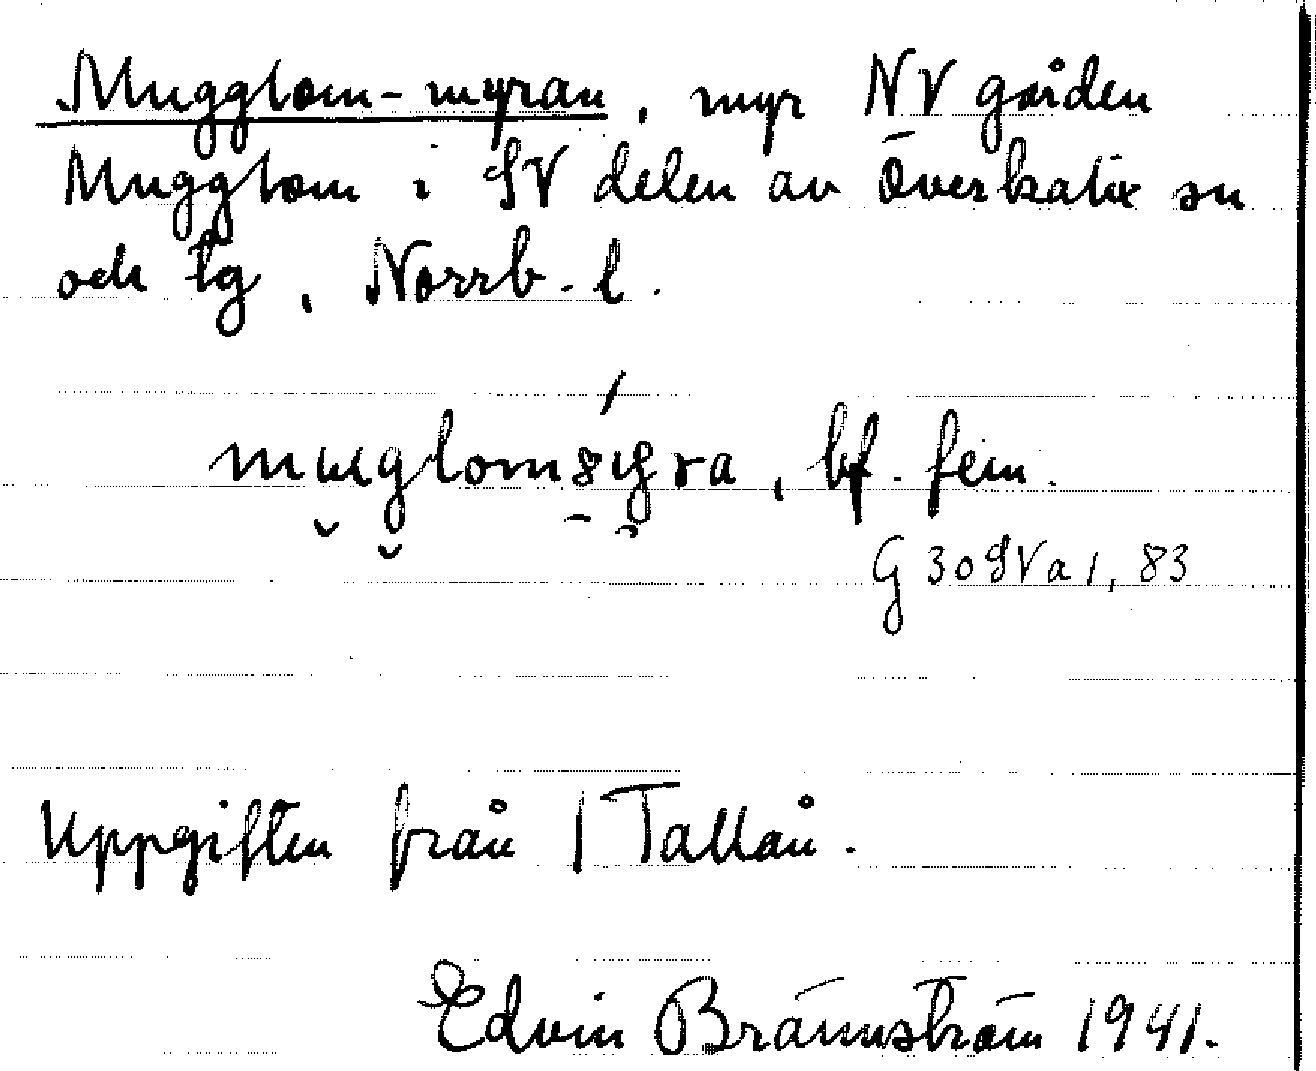 Mugglom-myran, myr NV gården
Mugglom i SV delen av Överkalix sn
och tg, Norrb. l.
bf. fem.
G 30 SV a 1, 83
Uppgiften från 1 Tallån.
Edvin Brännström 1941.